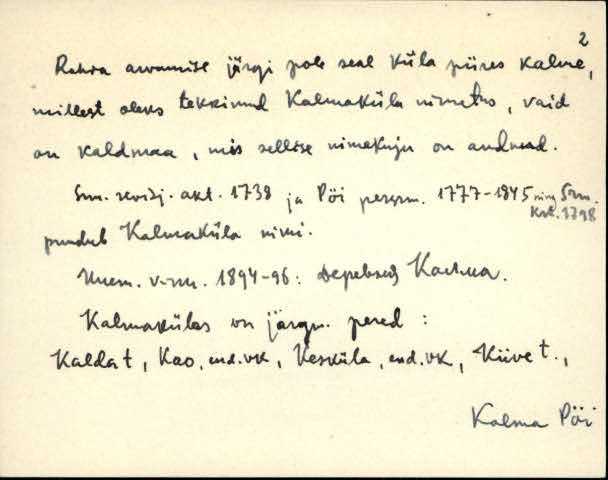 2
Rahva arvamise järgi pole seal küla piires kalme,
millest oleks tekkinud Kalmaküla nimetus, vaid
on kaldmaa, mis sellise nimekuju on andnud.
Srm. revisj. akt. 1738 ja Pöi persrm. 1777-1845 ning Srm.
Krt. 1798
puudub Kalmaküla nimi.
1894-96: деревня Калма.
Kalmakülas on järgm. pered:
Kaldat, Kao, end. vk, Kesküla, end. vk, Kiivet.,
Kalma Pöi